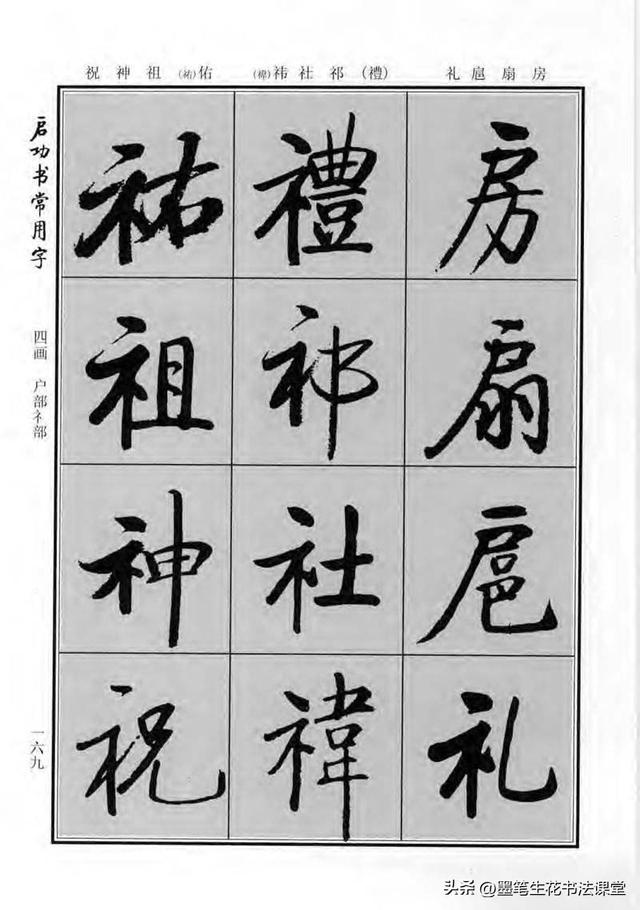 房扇扈礼 (禮)祁社祎(禕) 佑(祐)祖神祝
房扇扈礼
禮祁社禕
祐祖神祝
启功书常用字
四画 户部礻部
一六九
头条 @墨笔生花书法课堂